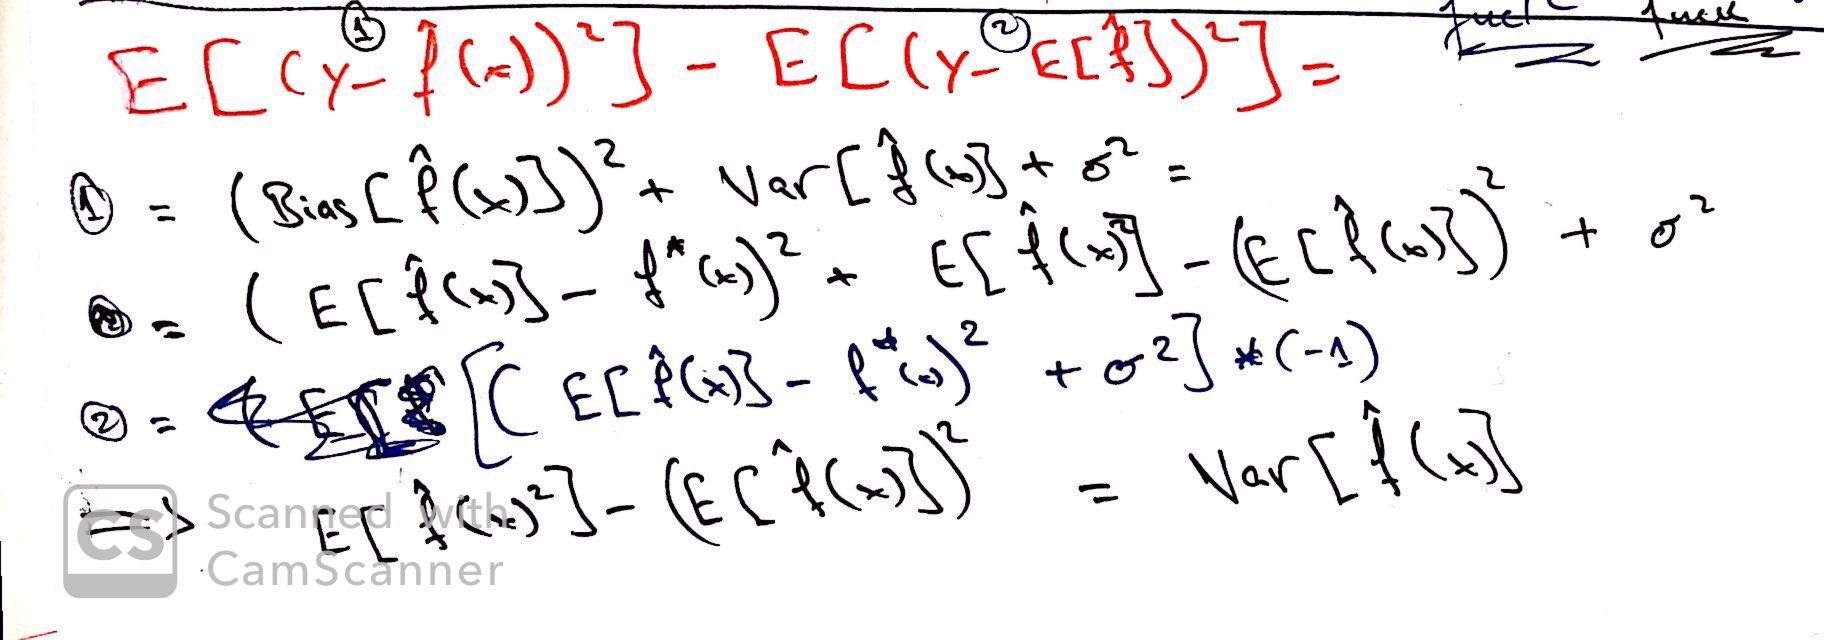 ① ②
E[(y - f̂(x))²] - E[(y - E[f̂])²] =
① = (Bias[f̂(x)])² + Var[f̂(x)] + σ² =
= (E[f̂(x)] - f*(x))² + E[f̂(x)²] - (E[f̂(x)])² + σ²
② = [(E[f̂(x)] - f*(x))² + σ²] * (-1)
=> E[f̂(x)²] - (E[f̂(x)])² = Var[f̂(x)]
CS Scanned with
CamScanner